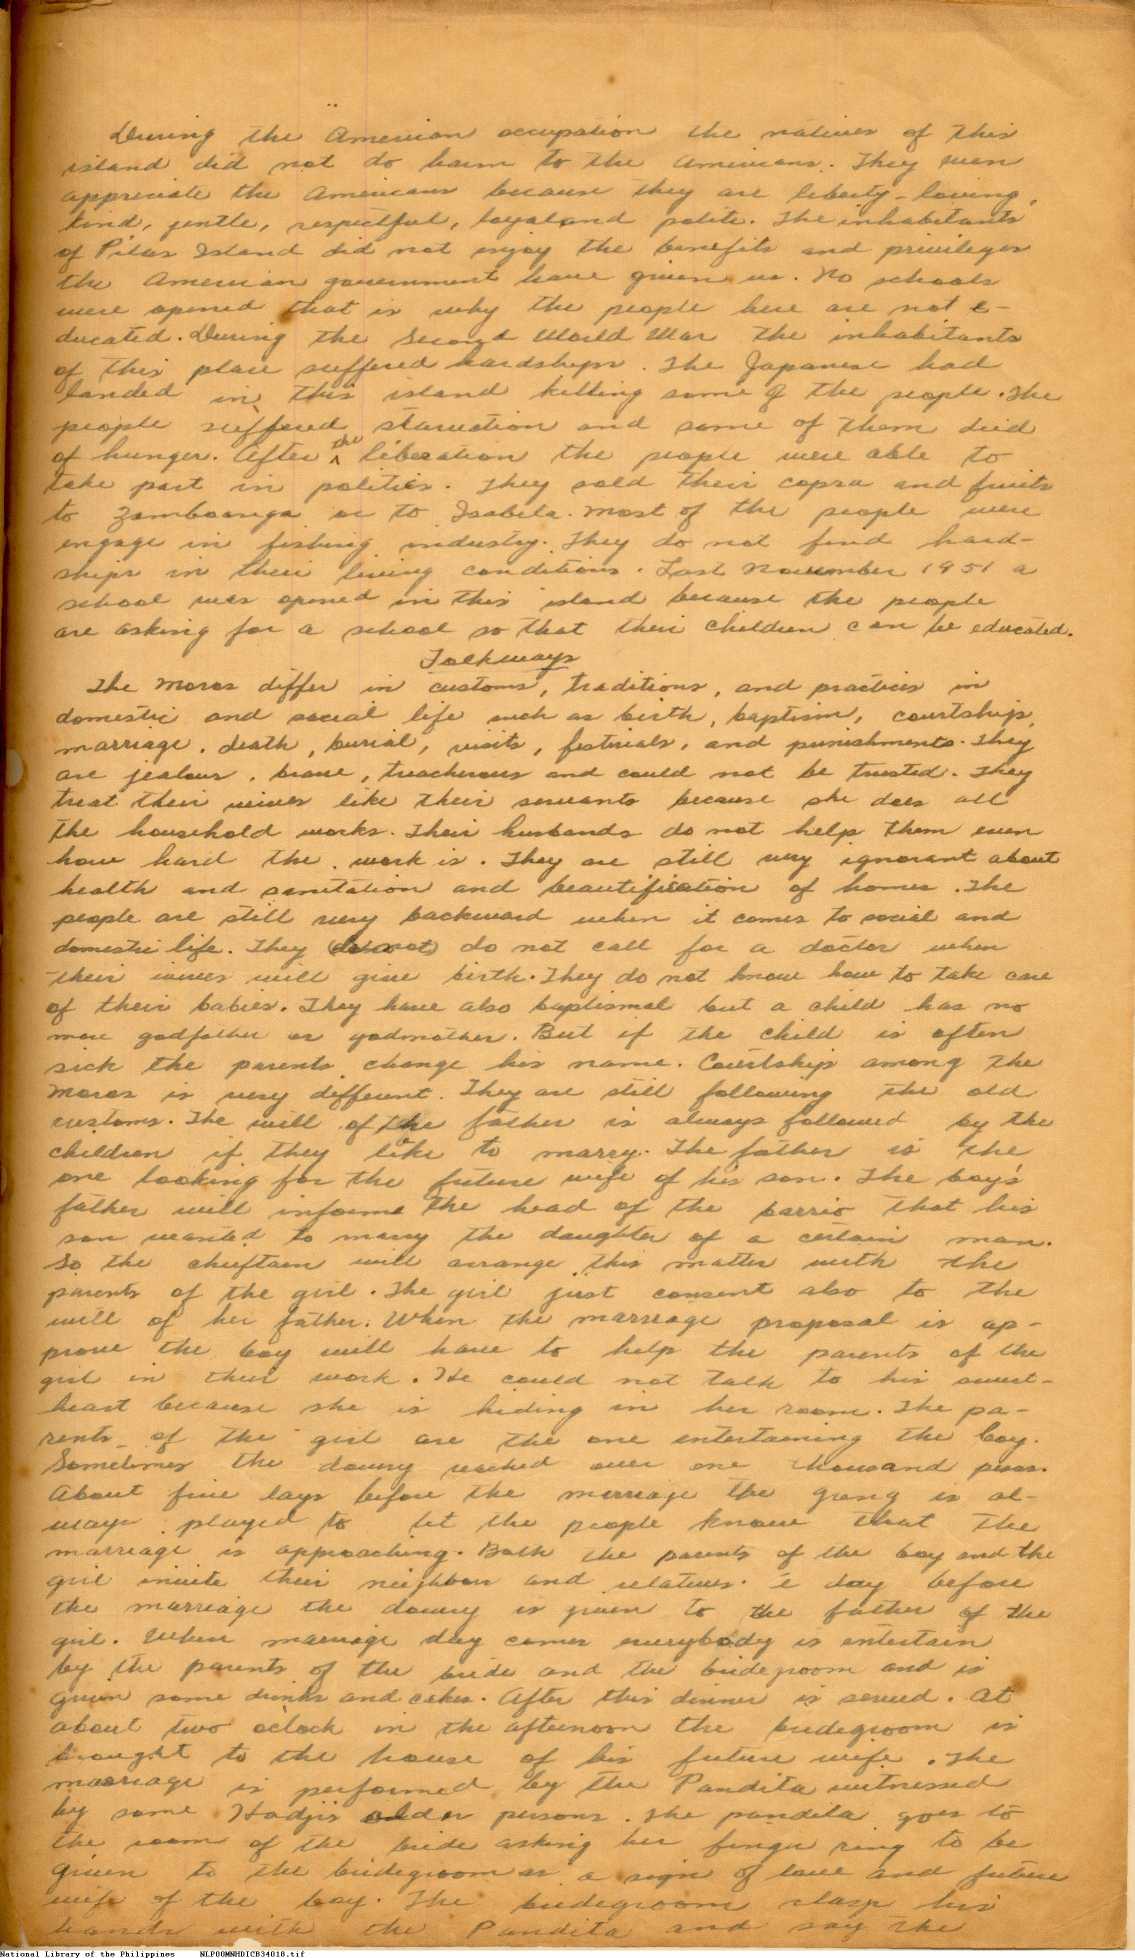 During the American occupation the natives of this
island did not do harm to the Americans. They even
appreciate the Americans because they are liberty-loving,
kind, gentle, respectful, loyal and polite. The inhabitants
of Pilas Island did not enjoy the benefits and privileges
the American government have given us. No schools
were opened that is why the people here are not e-
ducated. During the Second World War the inhabitants
of this place suffered hardships. The Japanese had
landed in this island killing some of the people. The
people suffered starvation and some of them died
of hunger. After the liberation the people were able to
take part in politics. They sold their copra and fruits
to Zamboanga or to Isabela. Most of the people were
engage in fishing industry. They do not find hard-
ships in their living conditions. Last November 1951 a
school was opened in this island because the people
are asking for a school so that their children can be educated.
Folkways
The Moros differ in customs, traditions, and practices in
domestic and social life such as birth, baptism, courtship,
marriage, death, burial, visits, festivals, and punishments. They
are jealous, brave, treacherous and could not be trusted. They
treat their wives like their servants because she does all
the household works. Their husbands do not help them even
how hard the work is. They are still very ignorant about
health and sanitation and beautification of homes. The
people are still very backward when it comes to social and
domestic life. They do not call for a doctor when
their wives will give birth. They do not know how to take care
of their babies. They have also baptismal but a child has no
more godfather or godmother. But if the child is often
sick the parents change his name. Courtship among the
Moros is very different. They are still following the old
customs. The will of the father is always followed by the
children if they like to marry. The father is the
one looking for the future wife of his son. The boy's
father will informe the head of the barrio that his
son wanted to marry the daughter of a certain man.
So the chieftain will arrange this matter with the
parents of the girl. The girl just consent also to the
will of her father. When the marriage proposal is ap-
prove the boy will have to help the parents of the
girl in their work. He could not talk to his sweet-
heart because she is hiding in her room. The pa-
rents of the girl are the one entertaining the boy.
Sometimes the dowry reached over one thousand pesos.
About five days before the marriage the gong is al-
ways played to let the people know that the
marriage is approaching. Both the parents of the boy and the
girl invite their neighbors and relatives. day before
the marriage the dowry is given to the father of the
girl. When marriage day comes everybody is entertain
by the parents of the bride and the bridegroom and is
given some drinks and cakes. After this dinner is served. At
about two o'clock in the afternoon the bridegroom is
brought to the house of his future wife. The
marriage is performed by the Pandita witnessed
by some Hadjis older persons. The pandita goes to
the room of the bride asking her finger ring to be
given to the bridegroom as a sign of love and future
wife of the boy. The bridegroom clasp his
hands with the Pandita and say the
National Library of the Philippines NLP00MNHDICB34018.tif